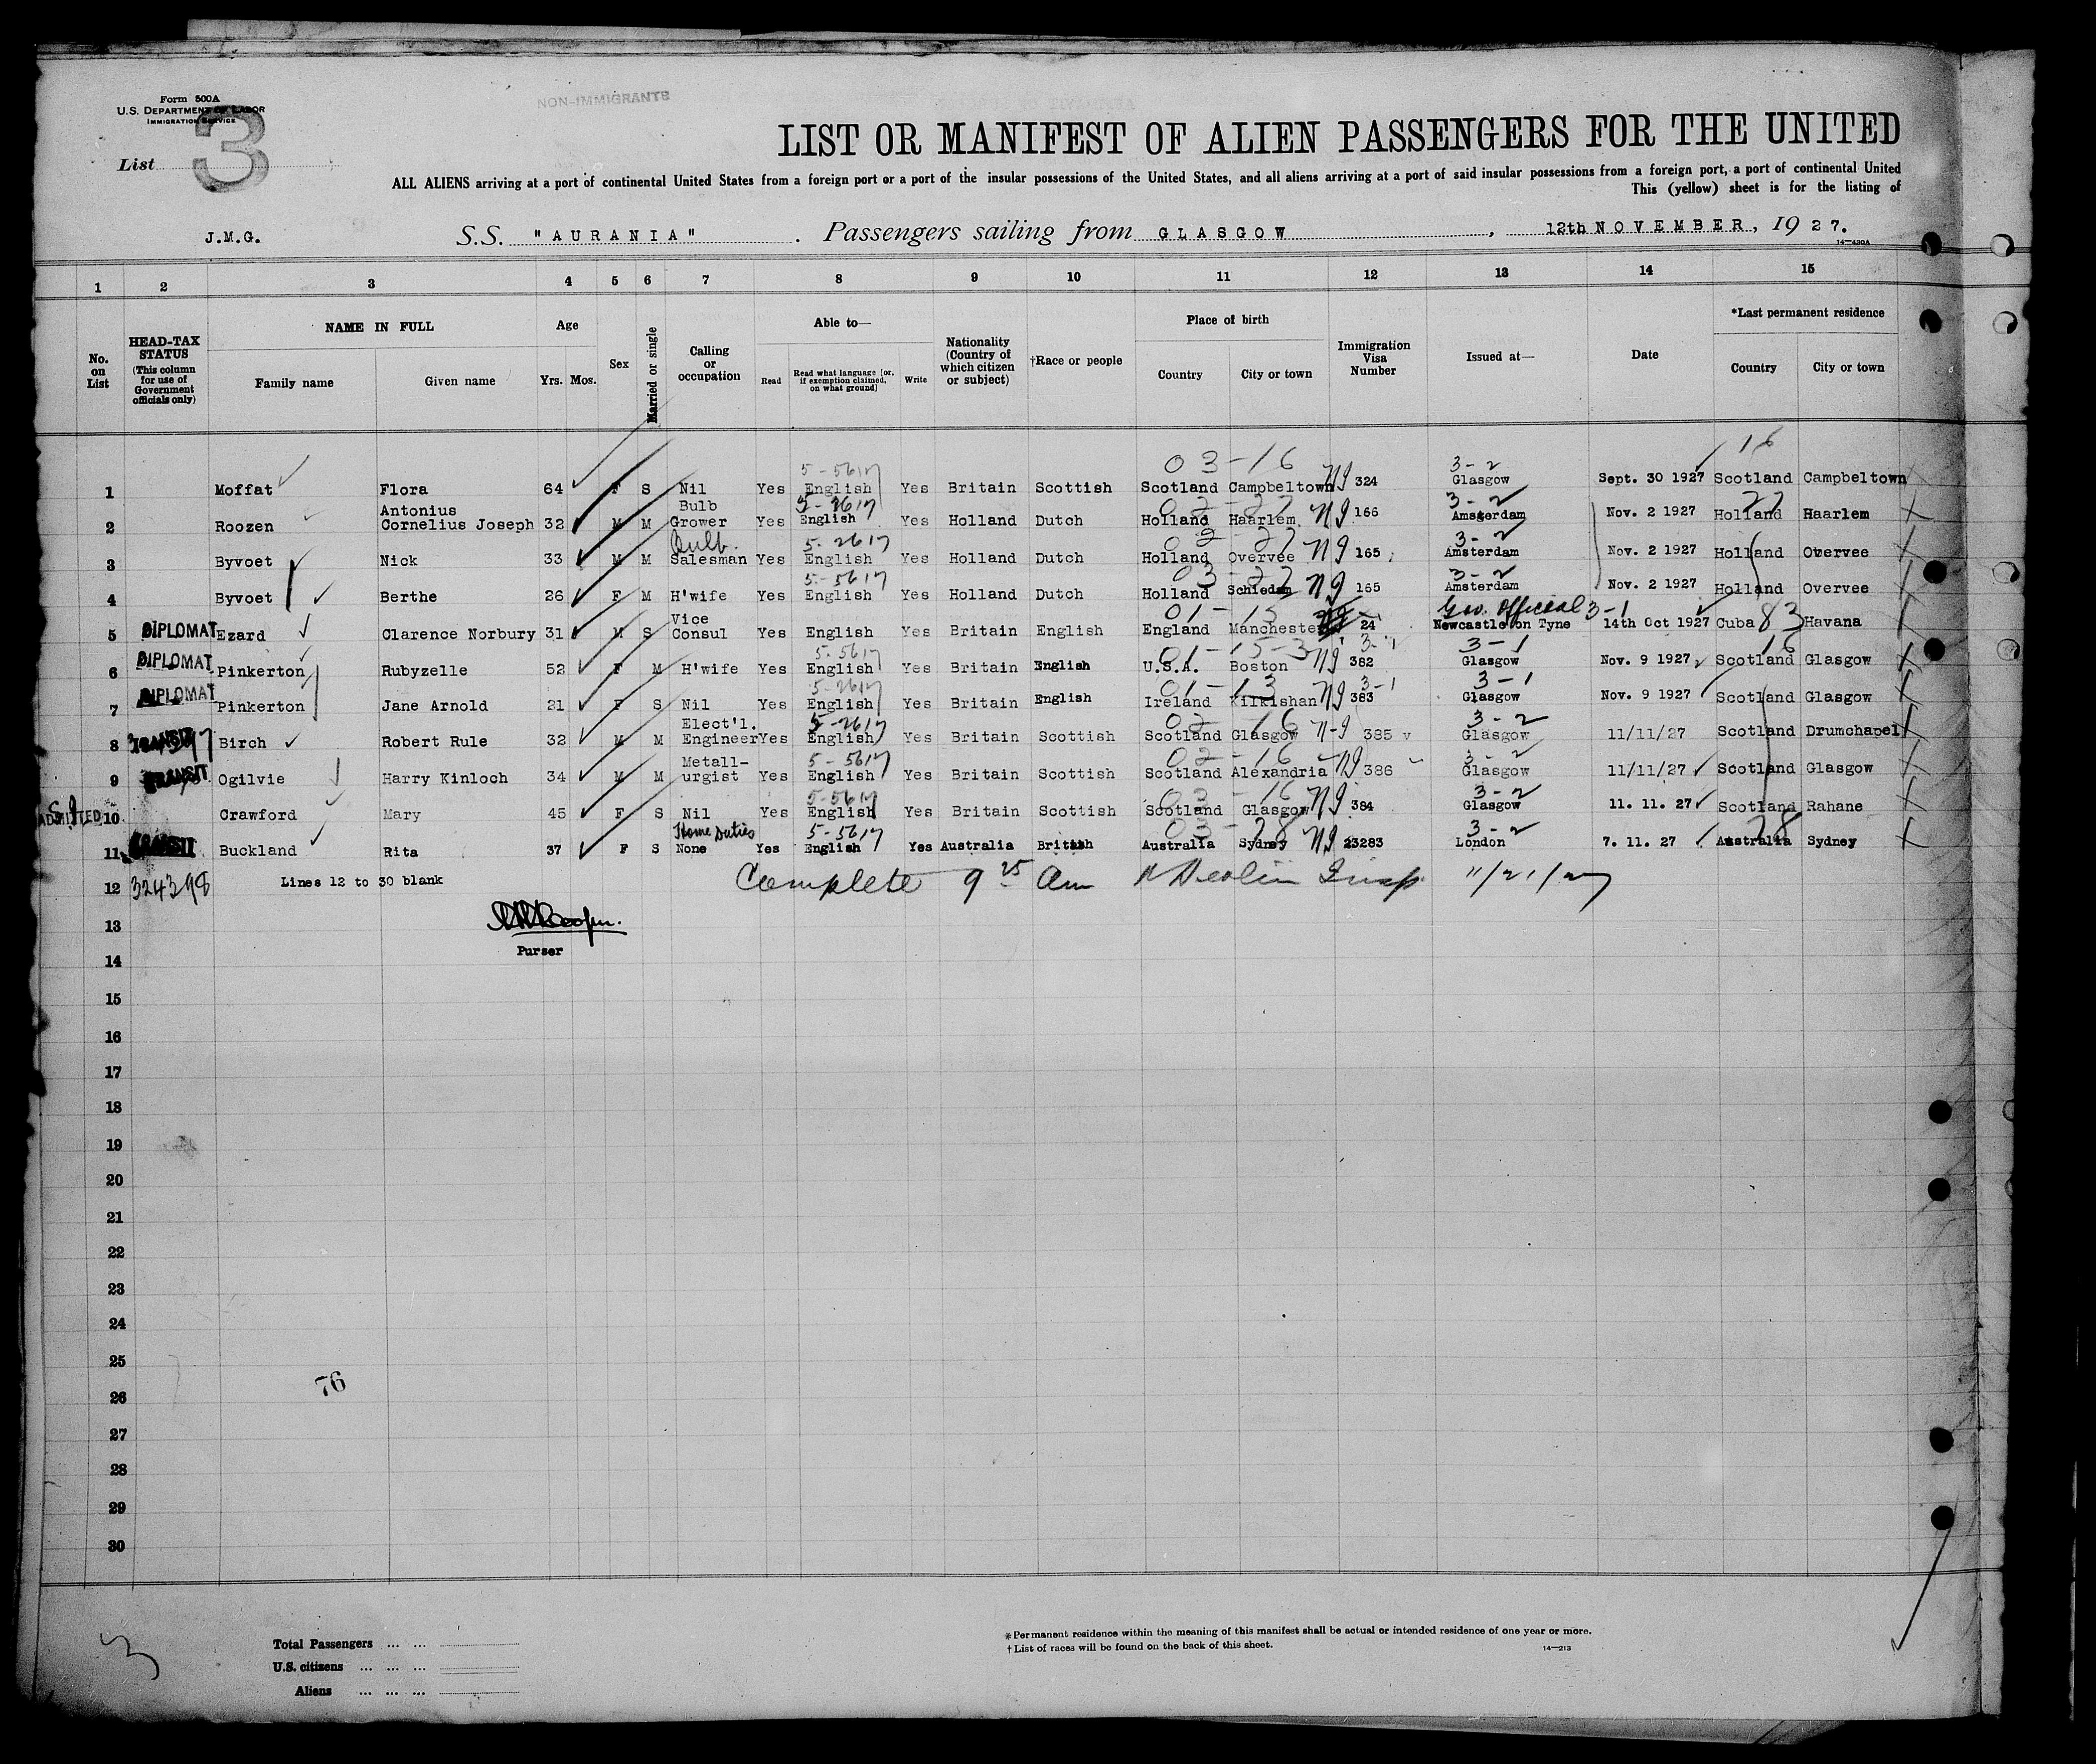 Form 500A
U.S. DEPARTMENT OF LABOR
IMMIGRATION SERVICE
NON-IMMIGRANTS
List 3
LIST OR MANIFEST OF ALIEN PASSENGERS FOR THE UNITED
ALL ALIENS arriving at a port of continental United States from a foreign port or a port of the insular possessions of the United States, and all aliens arriving at a port of said insular possessions from a foreign port, a port of continental United
This (yellow) sheet is for the listing of
J.M.G. S.S. "AURANIA". Passengers sailing from GLASGOW, 12th NOVEMBER, 1927.
14—430A
1 2 3 4 5 6 7 8 9 10 11 12 13 14 15
No. on List
HEAD-TAX STATUS (This column for use of Government officials only)
NAME IN FULL Family name Given name
Age Yrs. Mos.
Sex
Married or single
Calling or occupation
Able to— Read Read what language [or, if exemption claimed, on what ground] Write
Nationality (Country of which citizen or subject)
†Race or people
Place of birth Country City or town
Immigration Visa Number
Issued at—
Date
*Last permanent residence Country City or town
5-5617 03-16 3-2 16
1 Moffat Flora 64 F S Nil Yes English Yes Britain Scottish Scotland Campbeltown NI 324 Glasgow Sept. 30 1927 Scotland Campbeltown
5-2617 02-27 3-2 27
2 Roozen Antonius Cornelius Joseph 32 M M Bulb Grower Yes English Yes Holland Dutch Holland Haarlem NI 166 Amsterdam Nov. 2 1927 Holland Haarlem
Bulb. 5-2617 02-27 3-2
3 Byvoet Nick 33 M M Salesman Yes English Yes Holland Dutch Holland Overvee NI 165 Amsterdam Nov. 2 1927 Holland Overvee
5-5617 03-27 3-2
4 Byvoet Berthe 26 F M H'wife Yes English Yes Holland Dutch Holland Schiedam NI 165 Amsterdam Nov. 2 1927 Holland Overvee
01-15 Gov. Official 3-1 83
5 DIPLOMAT Ezard Clarence Norbury 31 M S Vice Consul Yes English Yes Britain English England Manchester 24 Newcastle on Tyne 14th Oct 1927 Cuba Havana
5-5617 01-15-3 3-1 3-1 16
6 DIPLOMAT Pinkerton Rubyzelle 52 F M H'wife Yes English Yes Britain English U.S.A. Boston NI 382 Glasgow Nov. 9 1927 Scotland Glasgow
5-2617 01-13 3-1 3-1
7 DIPLOMAT Pinkerton Jane Arnold 21 F S Nil Yes English Yes Britain English Ireland Kilkishan NI 383 Glasgow Nov. 9 1927 Scotland Glasgow
5-2617 02-16 3-2
8 TRANSIT Birch Robert Rule 32 M M Elect'l. Engineer Yes English Yes Britain Scottish Scotland Glasgow N-I 385 Glasgow 11/11/27 Scotland Drumchapel
5-5617 02-16 3-2
9 TRANSIT Ogilvie Harry Kinloch 34 M M Metall-urgist Yes English Yes Britain Scottish Scotland Alexandria NI 386 Glasgow 11/11/27 Scotland Glasgow
5-5617 03-16 3-2
S.I. ADMITTED 10 Crawford Mary 45 F S Nil Yes English Yes Britain Scottish Scotland Glasgow NI 384 Glasgow 11. 11. 27 Scotland Rahane
Home Duties 5-5617 03-28 3-2 28
11 TRANSIT Buckland Rita 37 F S None Yes English Yes Australia British Australia Sydney NI 23283 London 7. 11. 27 Australia Sydney
12 324398 Lines 12 to 30 blank Complete 9 25 Am Devlin Insp. 11/21/27
13
Purser
14
15
16
17
18
19
20
21
22
23
24
25
26 76
27
28
29
30
3
Total Passengers ... ...
U.S. citizens ... ... ...
Aliens ... ... ...
*Permanent residence within the meaning of this manifest shall be actual or intended residence of one year or more.
†List of races will be found on the back of this sheet. 14—213